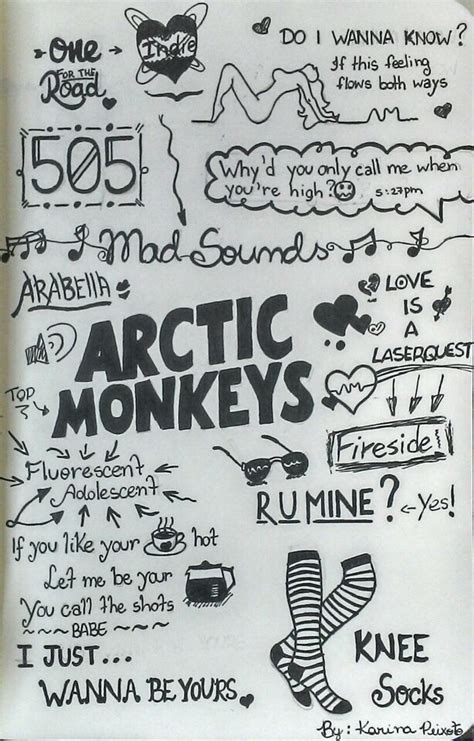 one
FOR THE
Road
Indie
DO I WANNA KNOW?
If this feeling
flows both ways
505
Why'd you only call me when
you're high?
5:27pm
Mad Sounds
ARABELLA
LOVE
IS
A
LASERQUEST
ARCTIC
MONKEYS
TOP
Fireside!
Fluorescent
Adolescent
R U MINE? Yes!
If you like your hot
Let me be your
You call the shots
~~~ BABE ~~~
I JUST...
WANNA BE YOURS
KNEE
SOCKS
By: Karina Peixoto